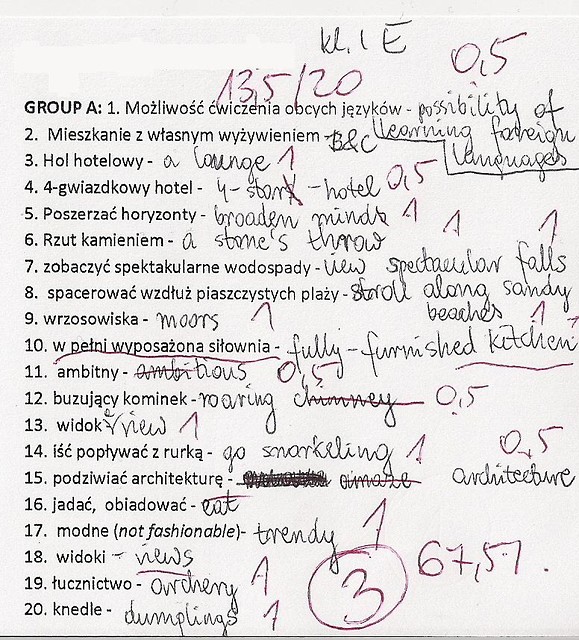 kl. I E
0,5
13,5/20
GROUP A: 1. Możliwość ćwiczenia obcych języków - possibility of
learning foreign
languages
2. Mieszkanie z własnym wyżywieniem - B&C
3. Hol hotelowy - a lounge 1
4. 4-gwiazdkowy hotel - 4-stars - hotel 0,5
5. Poszerzać horyzonty - broaden minds 1
6. Rzut kamieniem - a stone's throw 1 1
7. zobaczyć spektakularne wodospady - view spectacular falls
8. spacerować wzdłuż piaszczystych plaży - stroll along sandy
beaches 1
9. wrzosowiska - moors 1
10. w pełni wyposażona siłownia - fully-furnished kitchen
11. ambitny - ambitious 0,5
12. buzujący kominek - roaring chimney 0,5
13. widok - view 1
14. iść popływać z rurką - go snorkeling 1
0,5
15. podziwiać architekturę - amaze architecture
16. jadać, obiadować - eat
17. modne (not fashionable)- trendy 1
18. widoki - views
19. łucznictwo - archery 1
20. knedle - dumplings 1
3
67,5%.